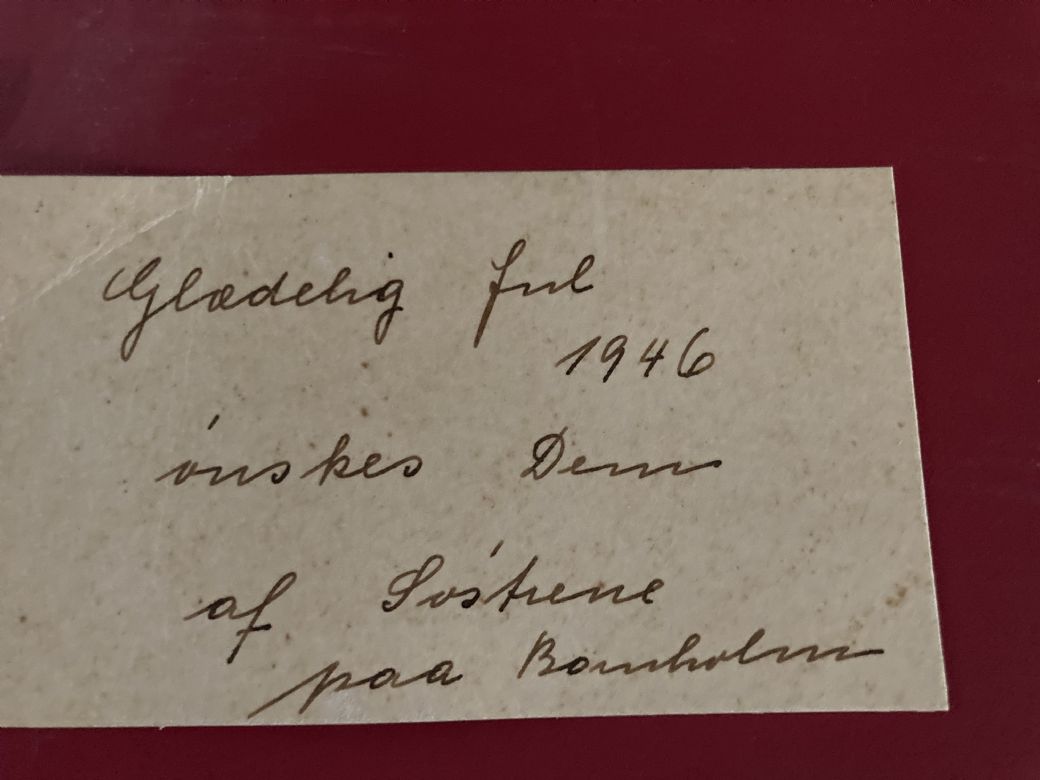 Glædelig Jul
1946
ónskes Dem
af Sóstrene
paa Bornholm